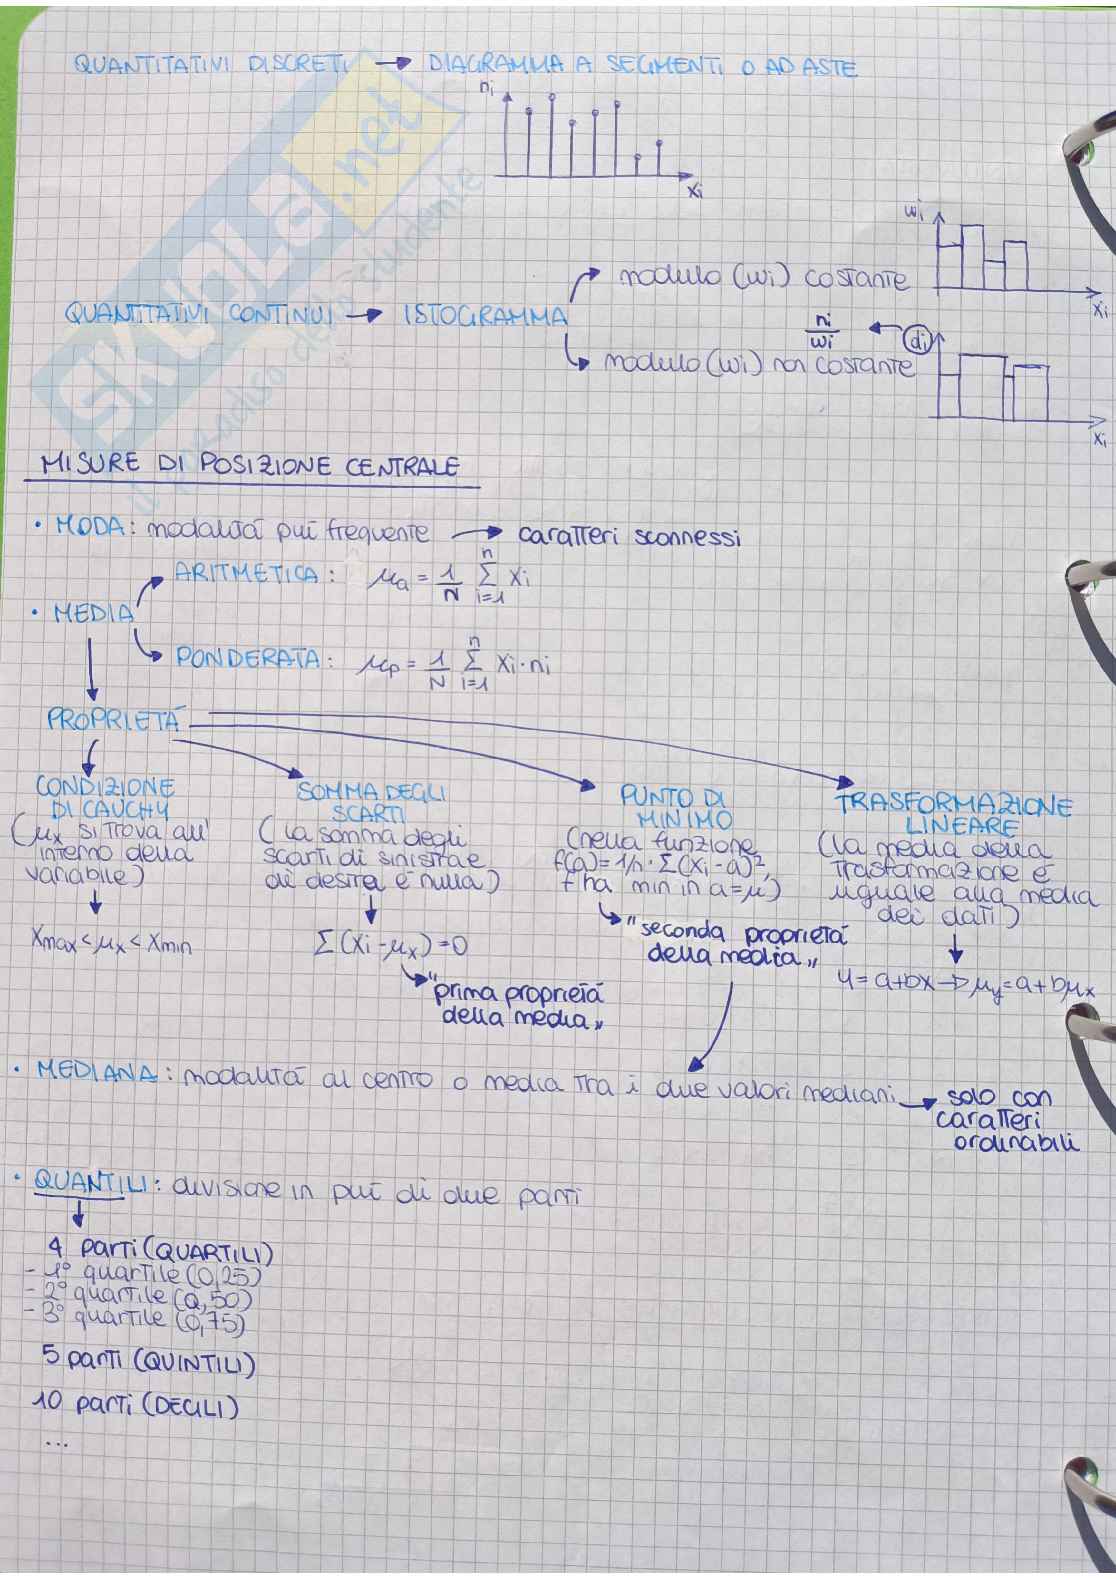 QUANTITATIVI DISCRETI → DIAGRAMMA A SEGMENTI O AD ASTE
ni
xi
wi
xi
QUANTITATIVI CONTINUI → ISTOGRAMMA
modulo (wi) costante
ni/wi ← di
modulo (wi) non costante
xi
MISURE DI POSIZIONE CENTRALE
• MODA: modalitá puí frequente → caratteri sconnessi
• MEDIA
ARITMETICA: μa = 1/N Σ(i=1, n) xi
PONDERATA: μp = 1/N Σ(i=1, n) xi·ni
PROPRIETÁ
CONDIZIONE
DI CAUCHY
(μx si trova all'
interno della
variabile)
Xmax < μx < Xmin
SOMMA DEGLI
SCARTI
(la somma degli
scarti di sinistra e
di destra é nulla)
Σ(xi - μx) = 0
"prima proprietá
della media"
PUNTO DI
MINIMO
(nella funzione
f(a) = 1/n · Σ(xi - a)²,
f ha min in a = μ)
"seconda proprietá
della media"
TRASFORMAZIONE
LINEARE
(la media della
trasformazione é
uguale alla media
dei dati)
y = a + bx → μy = a + bμx
• MEDIANA: modalitá al centro o media tra i due valori mediani → solo con
caratteri
ordinabili
• QUANTILI: divisione in puí di due parti
4 parti (QUARTILI)
- 1° quartile (0,25)
- 2° quartile (0,50)
- 3° quartile (0,75)
5 parti (QUINTILI)
10 parti (DECILI)
...
SKUOLA.net
il paradiso dello studente